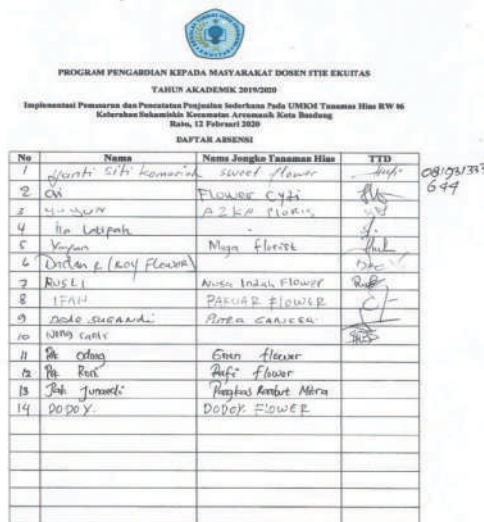 PROGRAM PENGABDIAN KEPADA MASYARAKAT DOSEN STIE EKUITAS
TAHUN AKADEMIK 2019/2020
Implementasi Pemasaran dan Pencatatan Penjualan Sederhana Pada UMKM Tanaman Hias RW 06
Kelurahan Sukamiskin Kecamatan Arcamanik Kota Bandung
Rabu, 12 Februari 2020
DAFTAR ABSENSI
No Nama Nama Jongko Tanaman Hias TTD
1 Yanti Siti Komariah Sweet flower
2 FLOWER
3 YUYUN AZKA
4 Latipah
5 Yayan Florist
6 (ROY Flower)
7 RUSLI Nusa Indah Flower
8 IFAN PAKUAR FLOWER
9 DEDE SUGANDI PUTRA
10 Neng
11 Pk Odong flower
12 Pk Roni Rafi flower
13 Pak Junaedi Pangkas Rambut Mitra
14 DODOY. DODOY FLOWER